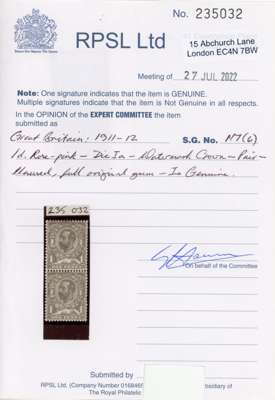 No. 235032
RPSL Ltd
15 Abchurch Lane
London EC4N 7BW
Meeting of 27 JUL 2022
Note: One signature indicates that the item is GENUINE.
Multiple signatures indicate that the item is Not Genuine in all respects.
In the OPINION of the EXPERT COMMITTEE the item
submitted as
Great Britain: 1911-12 S.G. No. N7(6)
1d. Rose-pink - Die 1a - Watermark Crown - Pair -
full original gum - Is Genuine.
235 032
On behalf of the Committee
Submitted by
RPSL Ltd. (Company Number 0168465 subsidiary of
The Royal Philatelic